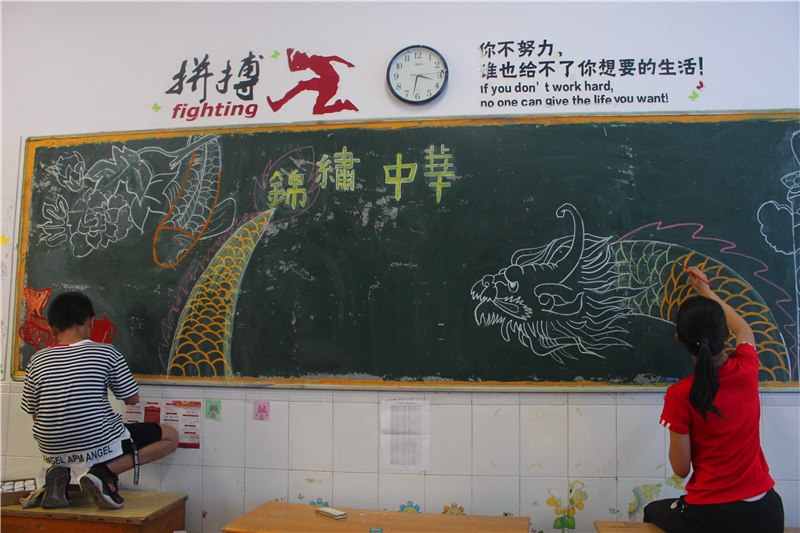 拼搏
fighting
你不努力，
谁也给不了你想要的生活！
If you don't work hard,
no one can give the life you want!
錦繡中華
ANGEL APM ANGEL